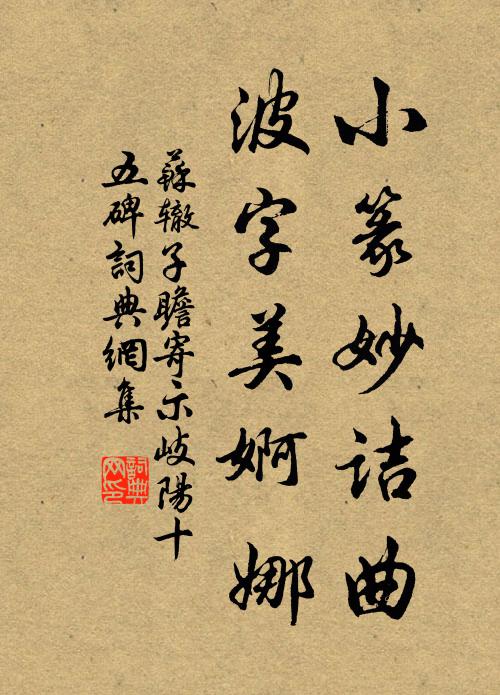 小篆妙诘曲
波字美婀娜
蘇辙子瞻寄示岐陽十
五碑詞典網集
詞典
网印